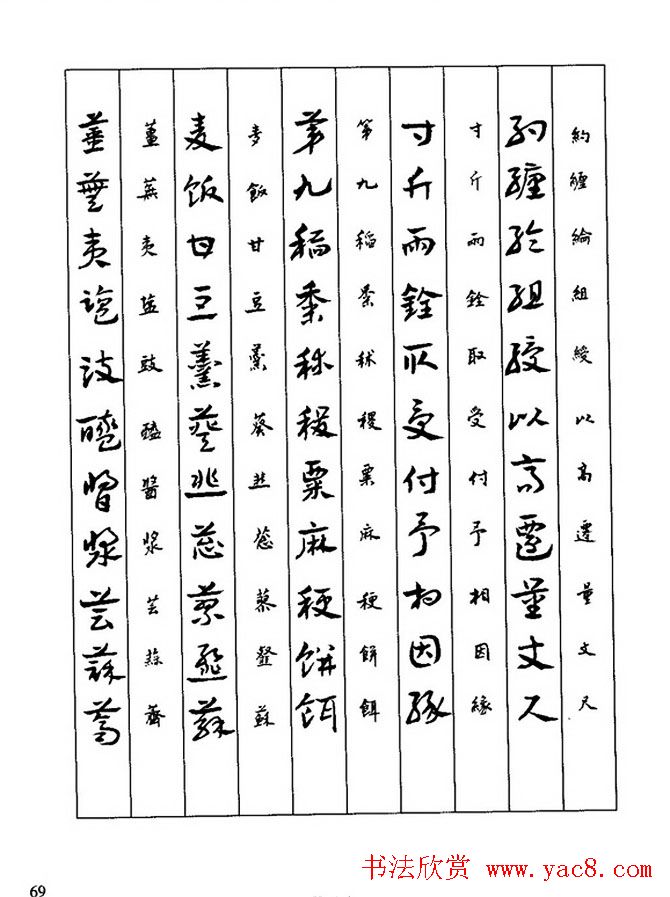 約纏綸組綬以高遷量丈尺
約纏綸組綬以高遷量丈尺
寸斤兩銓取受付予相因緣
寸斤兩銓取受付予相因緣
第九稻黍秫稷粟麻稉餅餌
第九稻黍秫稷粟麻稉餅餌
麥飯甘豆羹葵韭葱蘇
麥飯甘豆羹葵韭葱蘇
薑蕪夷鹽豉醯醬漿芸蒜薺
薑蕪夷鹽豉醯醬漿芸蒜薺
69
书法欣赏 www.yac8.com